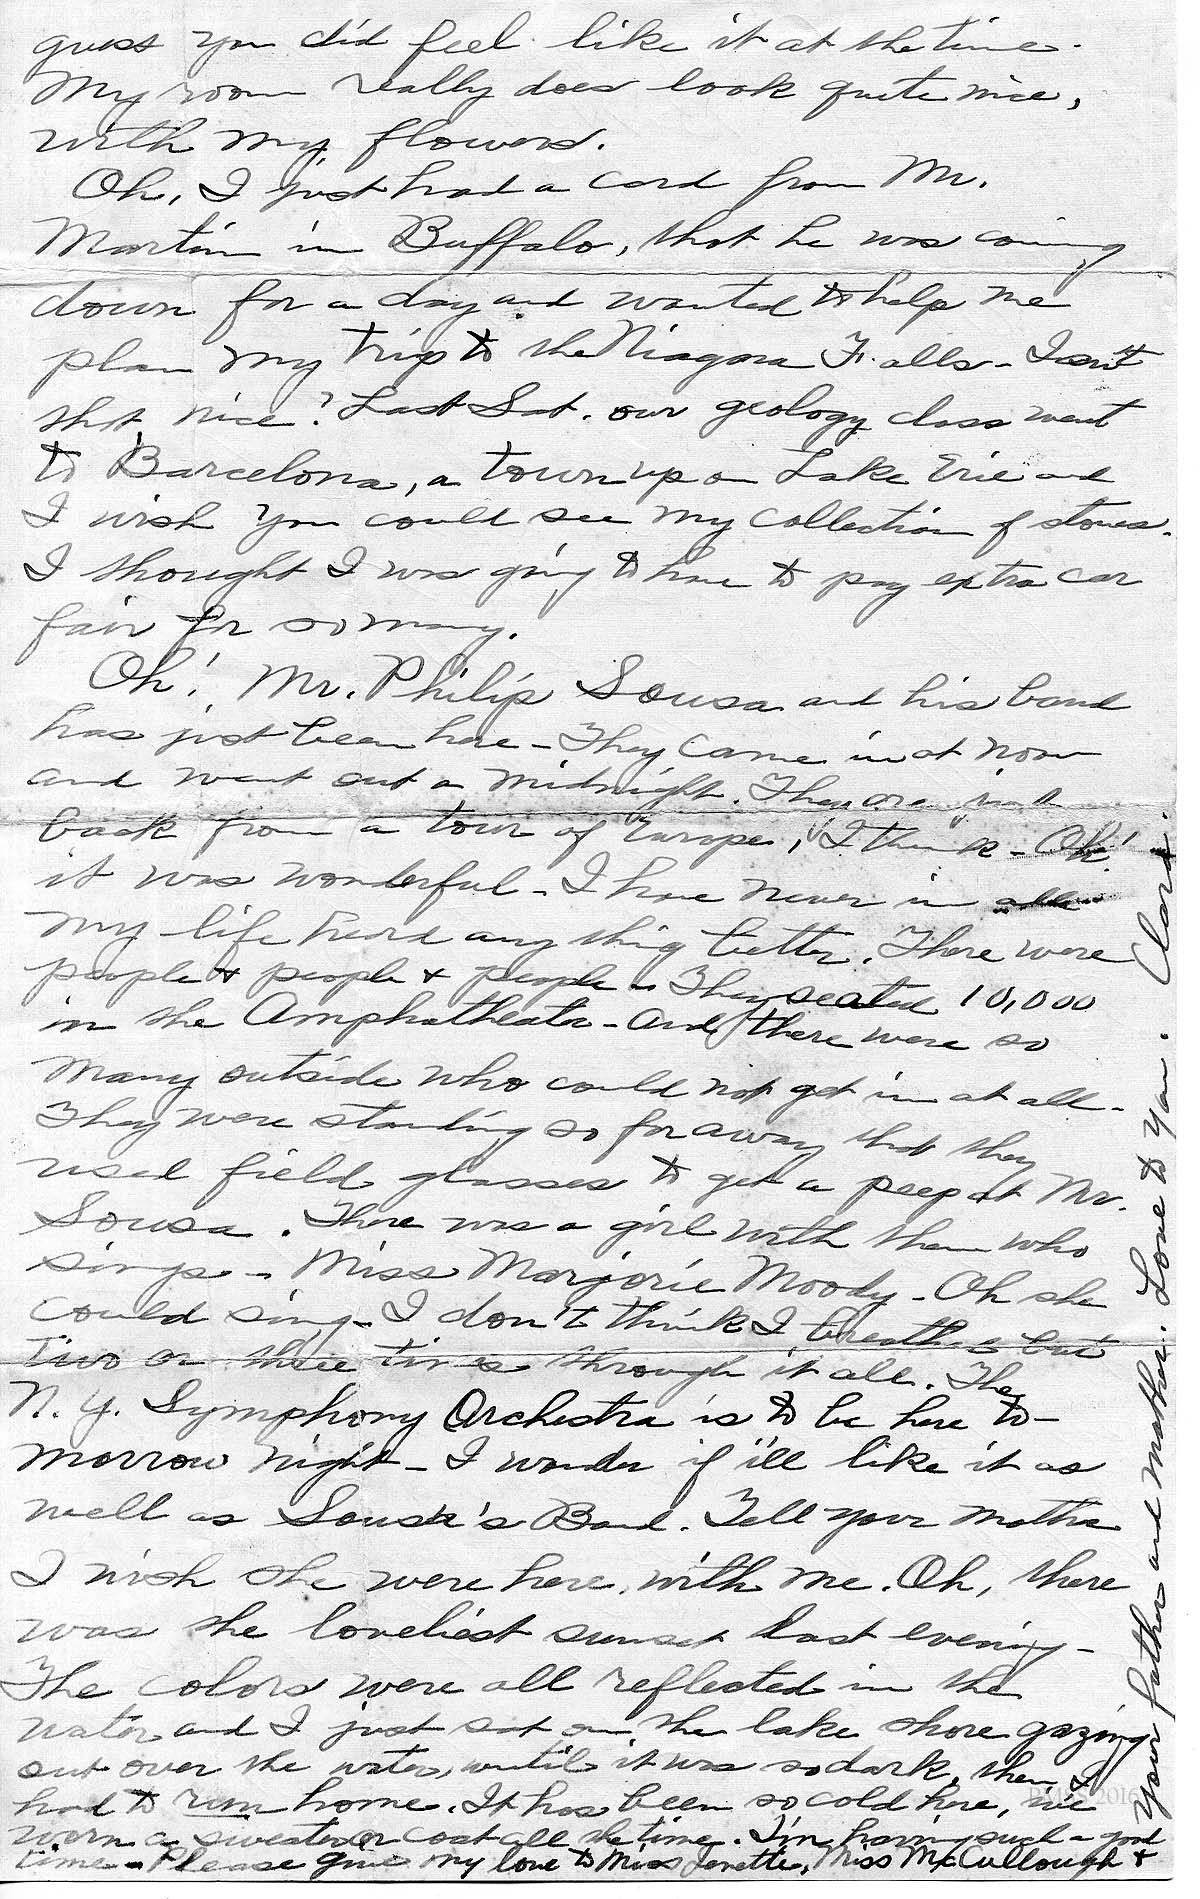 guess you did feel like it at the time.
My room really does look quite nice,
with my flowers.
Oh, I just had a card from Mr.
Martin in Buffalo, that he was coming
down for a day and wanted to help me
plan my trip to the Niagara Falls - Isn't
that nice? Last Sat. our geology class went
to Barcelona, a town up on Lake Erie and
I wish you could see my collection of stones.
I thought I was going to have to pay extra car
fair for so many.
Oh! Mr. Philip Sousa and his band
has just been here - They came in at noon
and went out a midnight. They are just
back from a tour of Europe, I think - Oh!
it was wonderful - I have never in all
my life heard any thing better. There were
people & people & people - They seated 10,000
in the Amphatheater - and there were so
many outside who could not get in at all -
They were standing so far away that they
used field glasses to get a peep at Mr.
Sousa. There was a girl with them who
sings - Miss Marjorie Moody - Oh she
could sing - I don't think I breathed but
two or three times through it all. The
N.Y. Symphony Orchestra is to be here to-
morrow night - I wonder if i'll like it as
well as Sousa's Band. Tell your mother
I wish she were here, with me. Oh, there
was the loveliest sunset last evening -
The colors were all reflected in the
water and I just sat on the lake shore gazing
out over the water, until it was so dark, then I
had to run home. It has been so cold here, we
worn a sweater or coat all the time. I'm having such a good
time - Please give my love to Miss Miss McCullough &
your father and mother. Love to you. Clara.